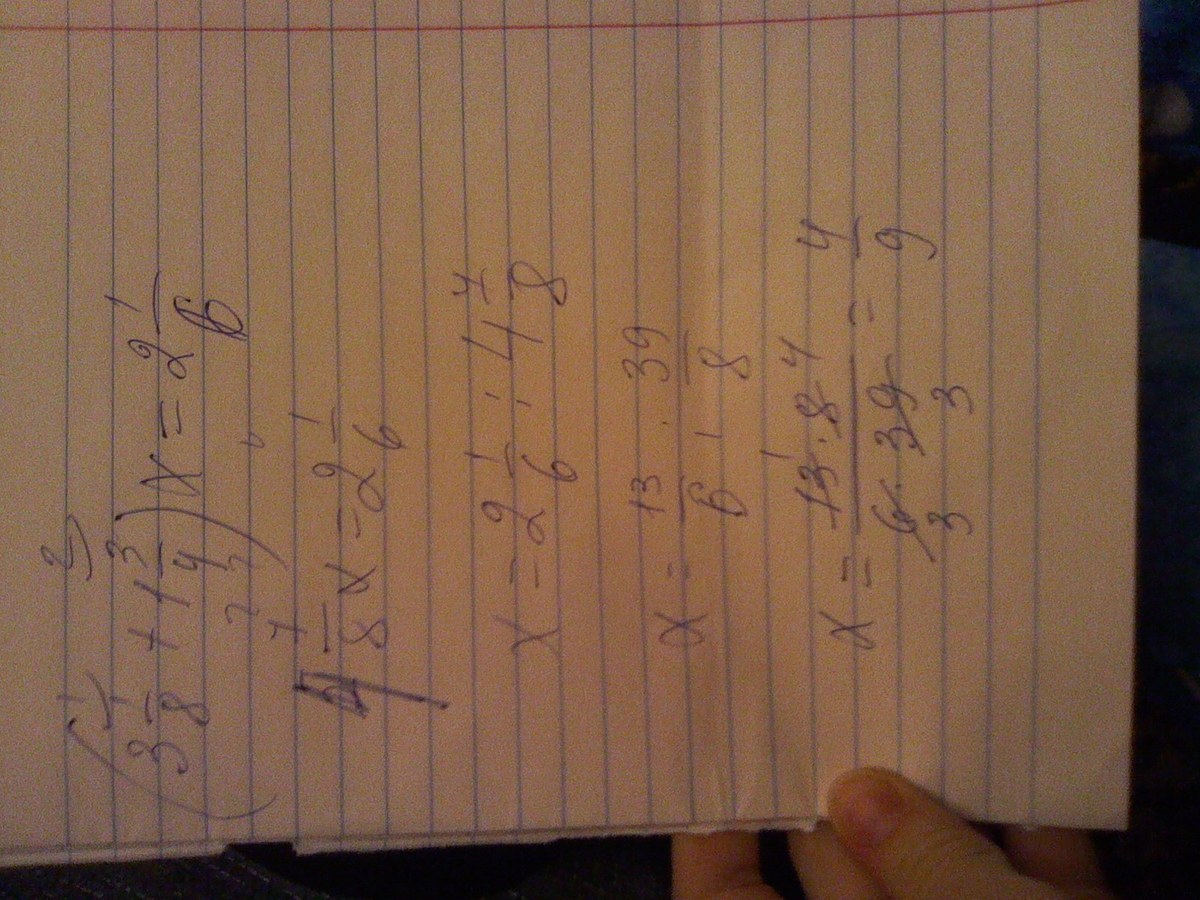 (3 1/8 + 1 3/4) x = 2 1/6
4 7/8 x = 2 1/6
x = 2 1/6 : 4 7/8
x = 13/6 : 39/8
x = 13 · 8 / 6 · 39 = 4/9